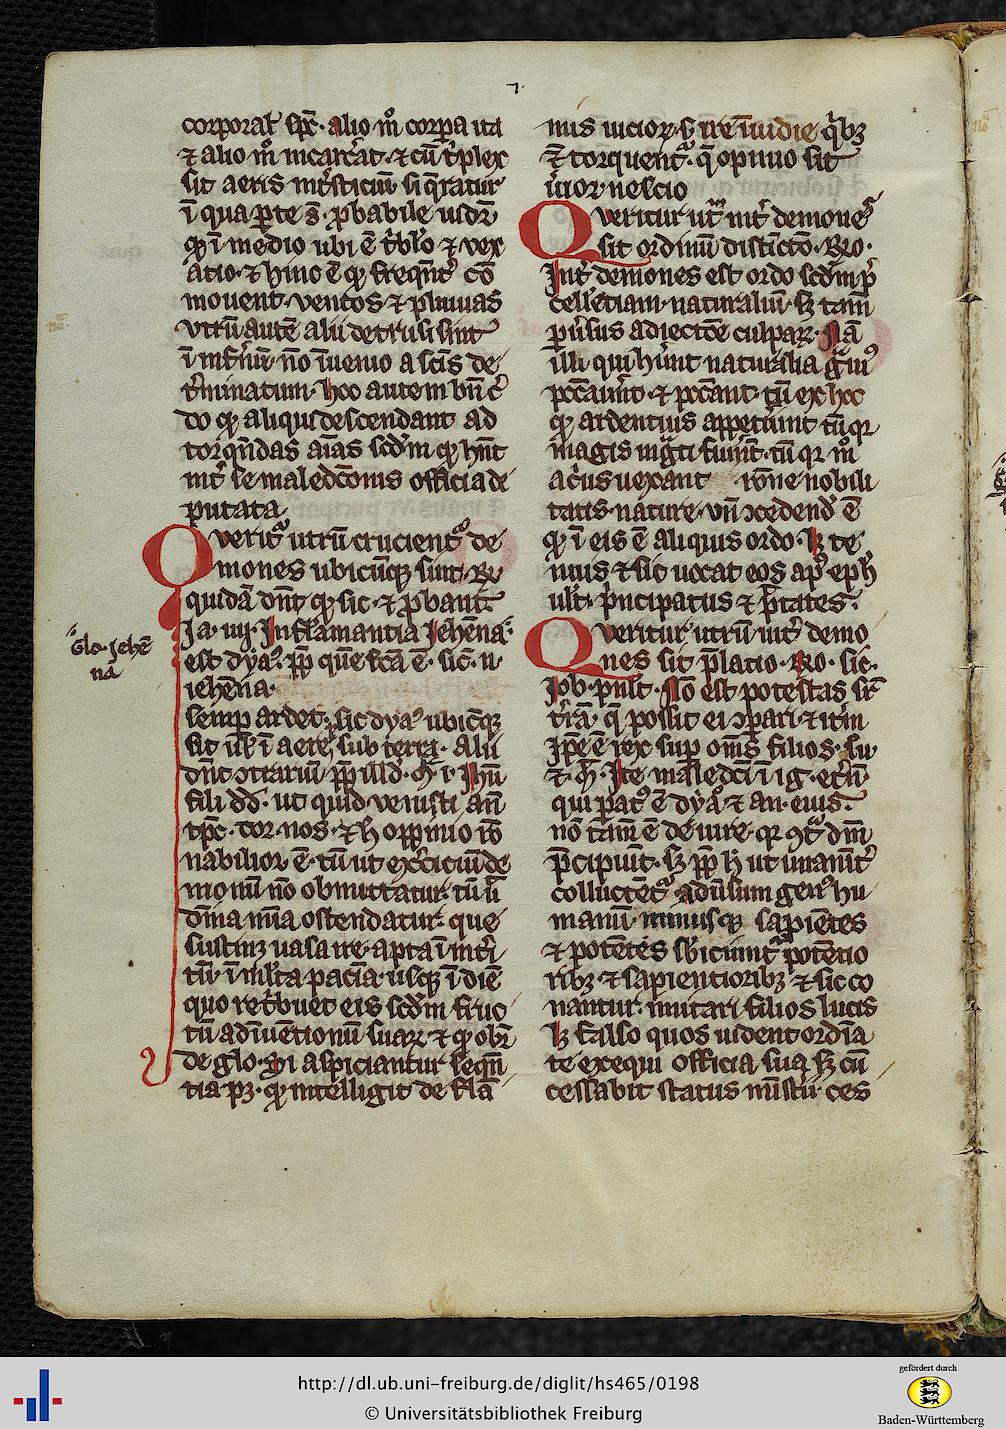 7.
corporal' spc̄. alio m̊ corp̄a ita
⁊ alio m̊ incarc̄at. ⁊ cū t'plex
sit aeris int'sticiū si q̄ratur
ī qua p̱te s̄. p̱babile uidr̄
ꝙ ī medio ubi ē t'bl'o ⁊ vex
atio. ⁊ hinc ē ꝙ freqn̄t' cō
mouent ventos ⁊ pluuias
vtrū autē alii detrusi sint
ī inf'nū. nō īuenio a sc̄is de
t'minatum. hoc autem bn̄ c'
do ꝙ aliqui descendant ad
torqn̄das aīas scd'm ꝙ hn̄t
int' se maledc̄onis officia de
putata
Querit᷑ utrū crucient᷑ de
mones ubicūqꝫ sunt. R̄o
quidā dn̄t ꝙ sic. ⁊ p̱bant
Ja. iiij. Inflamantia Jehēna.
Glo. Jehē
nā
est dya9. ꝓp̄ quē fc̄a ē. sic̄. n.
iehēna.
semp̱ ardet. sic dya9 ubicūqꝫ
sit ul' ī aere, sub terra. alii
dn̄t ↄtrariū ꝓp̄ ill'd. M̄. i. Ih'u
fili dd̄. ut quid venisti an̄
tp̄c. tor. nos. ⁊ h oppinio ro
nabilior ē. tū ut exc̄iciū de
monū nō obmittatur. tū ū
om̄ia nr̄a ostendatur. que
sustinꝫ uasa ire. apta ī int'i
tū. ī mlt'a pacīa. usqꝫ ī diē
quo ret'buet eis scd'm fruc
tū adīuētionū suaꝝ. ⁊ ꝙ obi'
de glo. si aspiciantur seqn̄
tia pꝫ. ꝙ intelligit de flā
mis uicioꝝ. s. ire īuidie q'bꝫ
⁊ torquent᷑. q̄ opinio sit
u'ior nescio
Queritur ut᷑ int' demones
sit ordinū distīctō. R̄o.
Int' demones est ordo scd'm p̄
cellētiam naturaliū. sꝫ tam̄
pri'us adiectōe culpaꝝ. Nā
illi qui hūnt naturalia g̃ui9
pcc̄auīnt ⁊ pcc̄ant. tū ex hoc
ꝙ ardentius appetiunt tū qꝛ
magis ing̃ti fuīnt. tū qꝛ m̊
ac'us uexant rōne nobili
tatis nature. vn̄ ↄcedend' ē
ꝙ ī eis ē aliquis ordo. lꝫ te
nuis ⁊ sic uocat eos ap9 eph
ult. p'ncipatus ⁊ p̄tates.
Queritur utrū int' demo
nes sit p̄latio. R̄o. sic.
Job. pnl't. Nō est potestas sr̄
t'rā. q̄ possit ei ↄpari. ⁊ it'm
Ip̄e ē rex sup̱ om̄s filios. su.
⁊ M̄. Ite maledc̄i ī ig. et'n.
qui pat9 ē dya9 ⁊ an. eius.
nō tam̄ ē de iure. qꝛ 9t᷑ dn̄i
p̄cipiūt. sꝫ ꝓp̄ h' ut unanīt'
colluctēt᷑ adūsum gen9 hu
manū. minusqꝫ sapiētes
⁊ potētes sbiciunt᷑ potētio
ribꝫ ⁊ sapientioribꝫ ⁊ sic co
nantur. imitari filios lucis
lꝫ falso quos uident ordīa
te exequi officia sua sꝫ cū
cessabit status mīstii. ces
http://dl.ub.uni-freiburg.de/diglit/hs465/0198
© Universitätsbibliothek Freiburg
gefördert durch
Baden-Württemberg